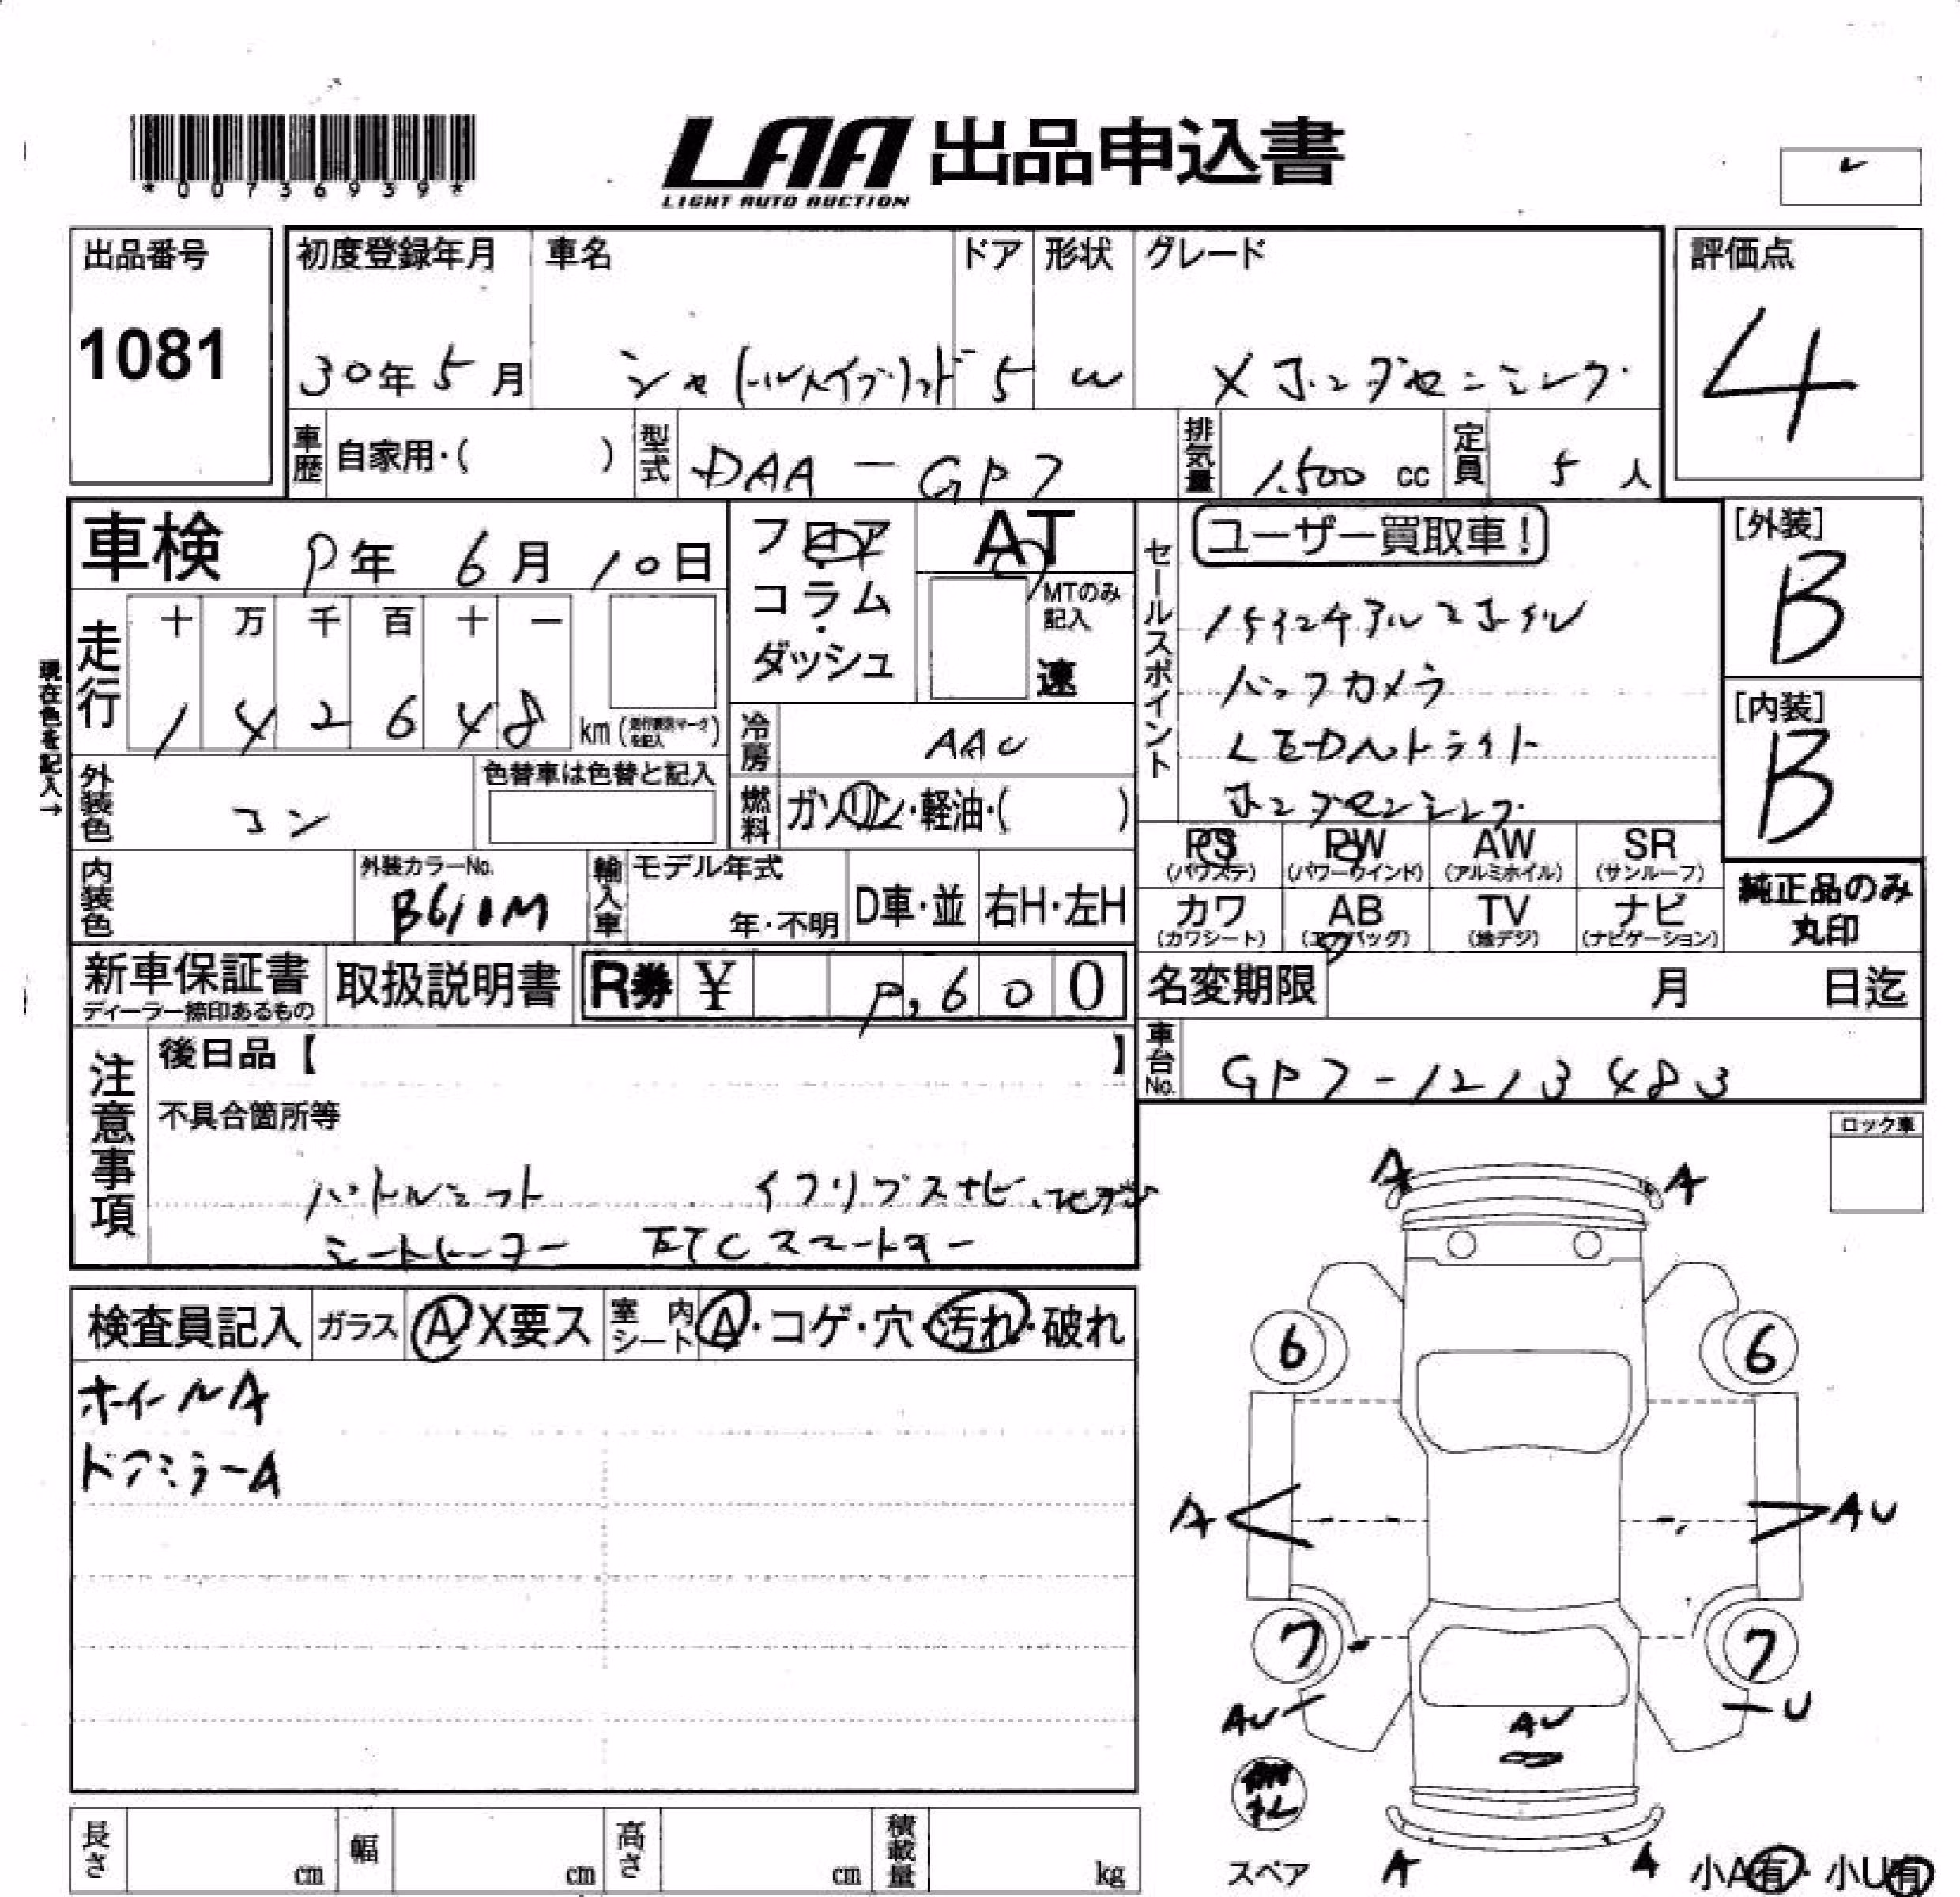 *00736939*
LAA 出品申込書
LIGHT AUTO AUCTION
出品番号
1081
初度登録年月 車名 ドア 形状 グレード
30年 5月 シャトルハイブリッド 5 W Xホンダセンシング
評価点
4
車歴 自家用・( ) 型式 DAA-GP7 排気量 1.500 cc 定員 5 人
車検 9年 6月 10日
フロア・コラム・ダッシュ
AT
MTのみ記入
速
走行
十 万 千 百 十 一
1 4 2 6 4 8 km
現在色を記入→
冷房 AAC
外装色 コン
色替車は色替と記入
燃料 ガソリン・軽油・( )
内装色
外装カラーNo.
B610M
輸入車 モデル年式
年・不明
D車・並
右H・左H
セールスポイント
ユーザー買取車!
15インチアルミホイル
バックカメラ
LEDヘットライト
ホンダセンシング
[外装]
B
[内装]
B
PS (パワステ) PW (パワーウインド) AW (アルミホイル) SR (サンルーフ)
カワ (カワシート) AB (エアバッグ) TV (地デジ) ナビ (ナビゲーション)
純正品のみ
丸印
新車保証書
ディーラー捺印あるもの
取扱説明書
R券 ¥ 9,600
名変期限 月 日迄
車台No. GP7-1213483
注意事項
後日品【 】
不具合箇所等
パドルシフト イクリプスナビ、フルセグ
シートヒーター ETC スマートキー
ロック車
検査員記入 ガラス A X要ス 室内シート A・コゲ・穴・汚れ・破れ
ホイールA
ドアミラーA
A A
6 6
A AU
7 7
AU U
AU
スペア
A A
小A有・小U有
長さ cm 幅 cm 高さ cm 積載量 kg